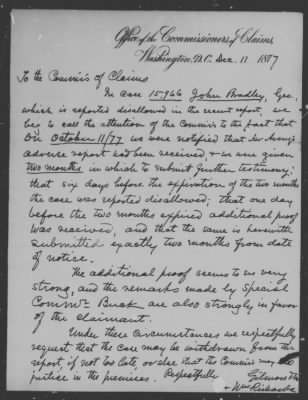 Office of the Commissioners of Claims,
Washington, D.C. Dec. 11 1877
To the Commis'rs of Claims
In case 15,966 John Bradley, Geo.
which is reported disallowed in the recent report, we
beg to call the attention of the Commis'rs to the fact that
On October 11/77 we were notified that
adverse report had been received, & we were given
two months in which to submit further testimony;
that six days before the expiration of the two months
the case was reported disallowed; that one day
before the two months expired additional proof
was received, and that the same is herewith
submitted exactly two months from date
of notice.
The additional proof seems to us very
strong, and the remarks made by Special
Comm'r Buck are also strongly in favor
of the claimant.
Under these circumstances we respectfully
request that the case may be withdrawn from the
report, if not too late, or else that the Commis'rs may do
justice in the premises. Respectfully
Gilmore & Co
Wm Richards